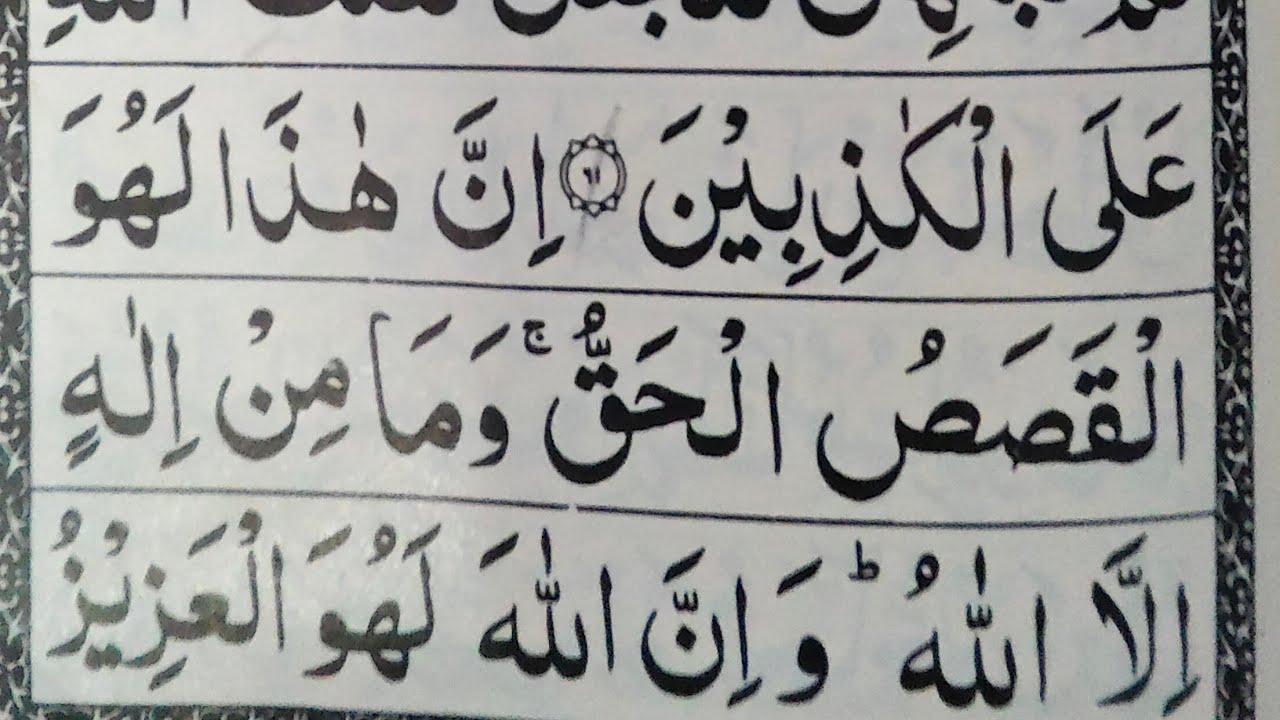 عَلَى الْكٰذِبِيْنَ ۝٦١ اِنَّ هٰذَا لَهُوَ
الْقَصَصُ الْحَقُّ ۚ وَمَا مِنْ اِلٰهٍ
اِلَّا اللّٰهُ ؕ وَاِنَّ اللّٰهَ لَهُوَ الْعَزِيْزُ